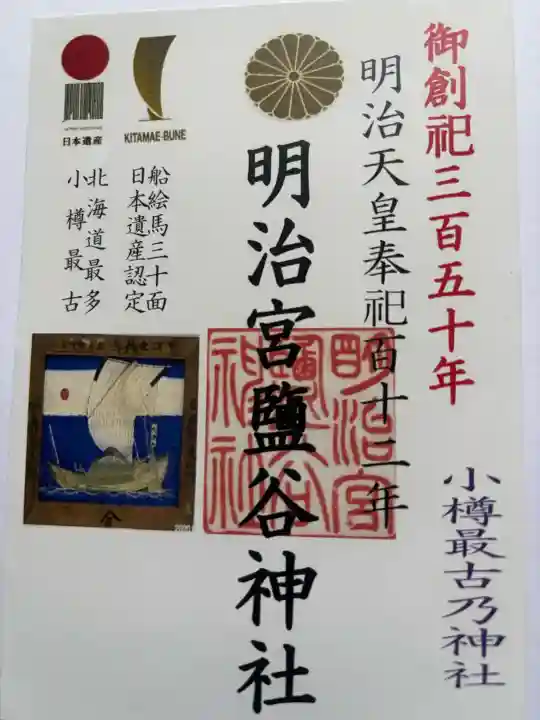 御創祀三百五十年
明治天皇奉祀百十二年
小樽最古乃神社
明治宮鹽谷神社
明治宮鹽谷神社
KITAMAE-BUNE
船絵馬三十面
日本遺産認定
日本遺産
北海道最多
小樽最古
2020